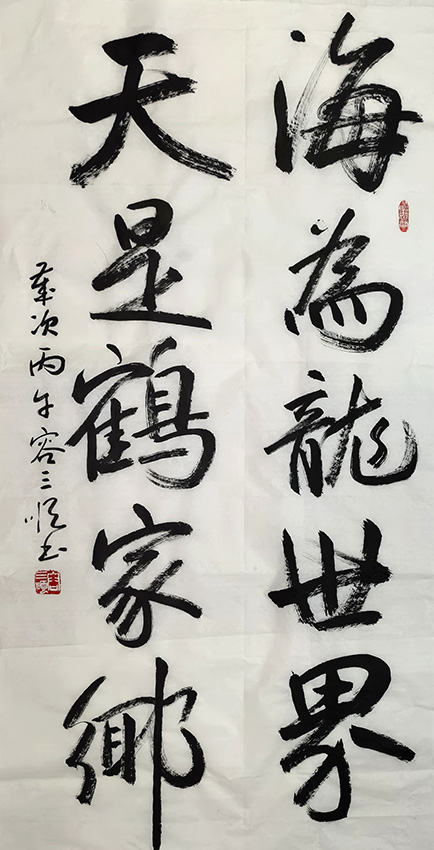 海為龍世界
天是鶴家鄉
歲次丙午容三順书